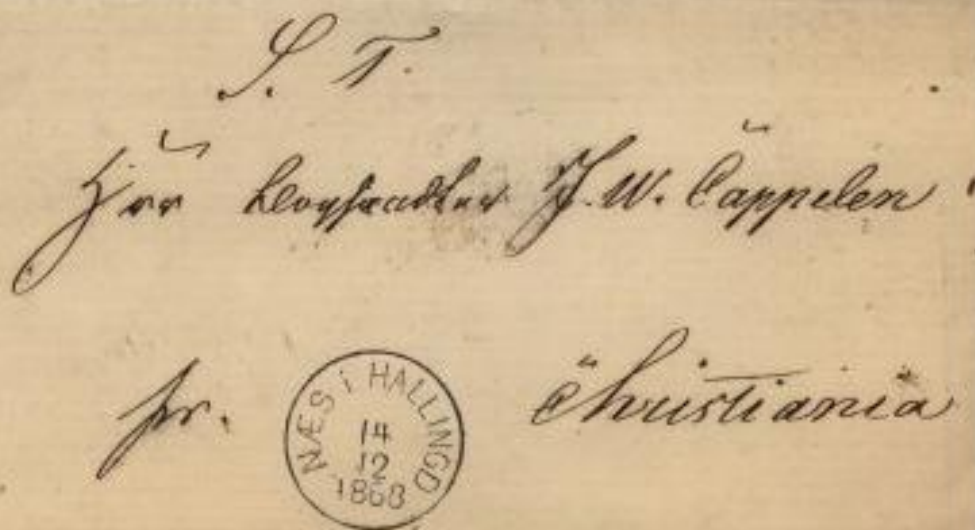 S. T.
Herr Boghandler J. W. Cappelen
pr. Christiania
NÆS i HALLINGD
14
12
1868